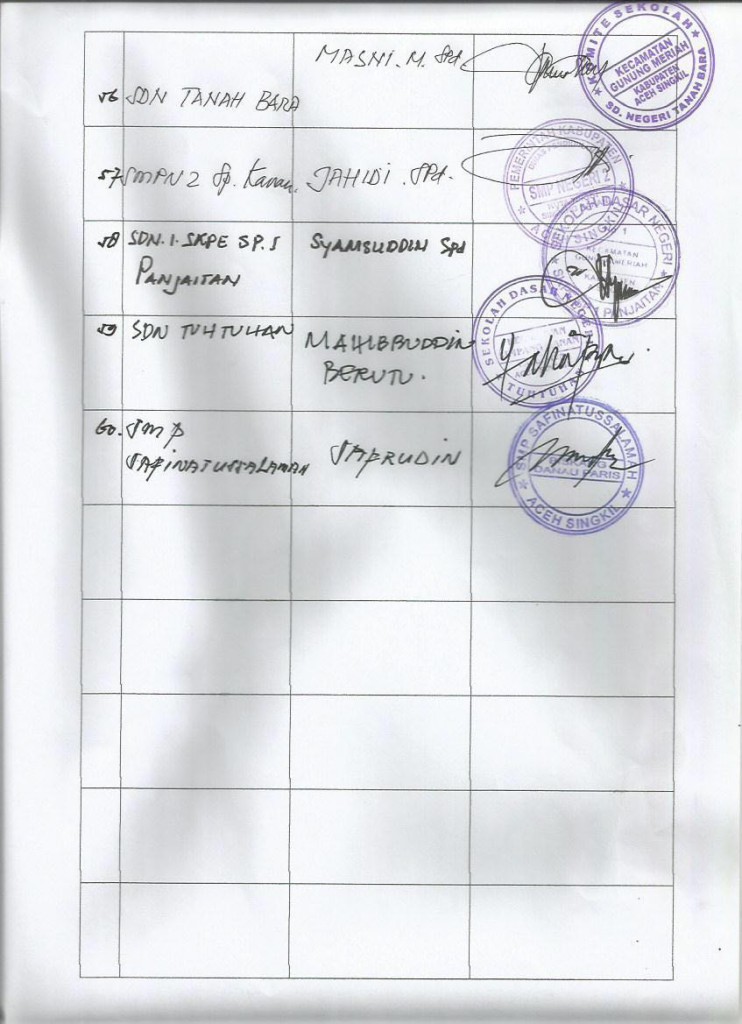 MASNI.M.Spd.
56 SDN TANAH BARA
KOMITE SEKOLAH
KECAMATAN
GUNUNG MERIAH
KABUPATEN
ACEH SINGKIL
SD. NEGERI TANAH BARA
57 SMPN 2 Sp. Kanan JAHIDI .SPd.
PEMERINTAH KABUPATEN
SMP NEGERI 2
ACEH SINGKIL
58 SDN.1.SKPE SP.1 SYAMSUDDIN Spd
PANJAITAN
SEKOLAH DASAR NEGERI
1
KECAMATAN
GUNUNG MERIAH
PANJAITAN
59 SDN TUHTUHAN MAHIBBUDDIN
BERUTU.
SEKOLAH DASAR NEGERI
TUHTUHAN
60. SMP
SAFINATUSSALAMAH SAPRUDIN
SMP SAFINATUSSALAMAH
DANAU PARIS
ACEH SINGKIL